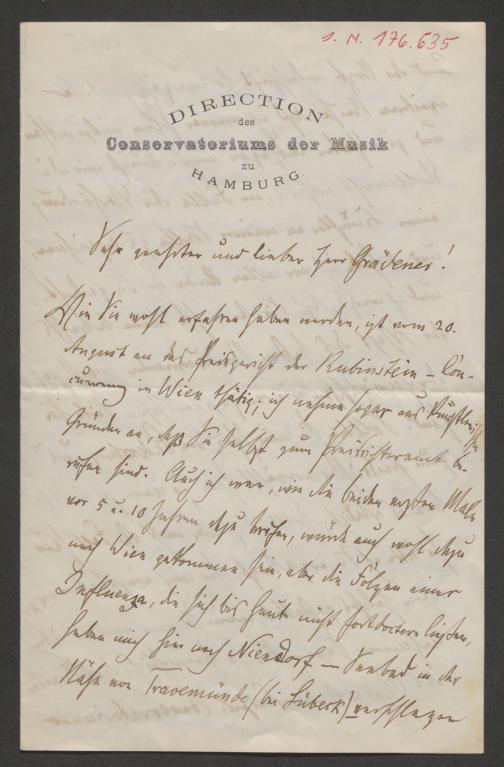 J. N. 176.635
DIRECTION
des
Conservatoriums der Musik
zu
HAMBURG.
Sehr geehrter und lieber Herr Grädener!
Wie Sie wohl erfahren haben werden, ist vom 20.
August an das Preisgericht der Rubinstein-Con-
currenz in Wien thätig; ich nehme sogar aus künstlerischen
Gründen an, daß Sie selbst zum Preisrichteramt be-
rufen sind. Auch ich war, wie die beiden ersten Male
vor 5 u. 10 Jahren dazu berufen, würde auch wohl dazu
nach Wien gekommen sein, aber die Folgen einer
Influenza, die sich bis heute nicht fortdoctern ließen,
haben mich hier nach Niendorf – Seebad in der
Nähe von Travemünde (bei Lübeck) verschlagen